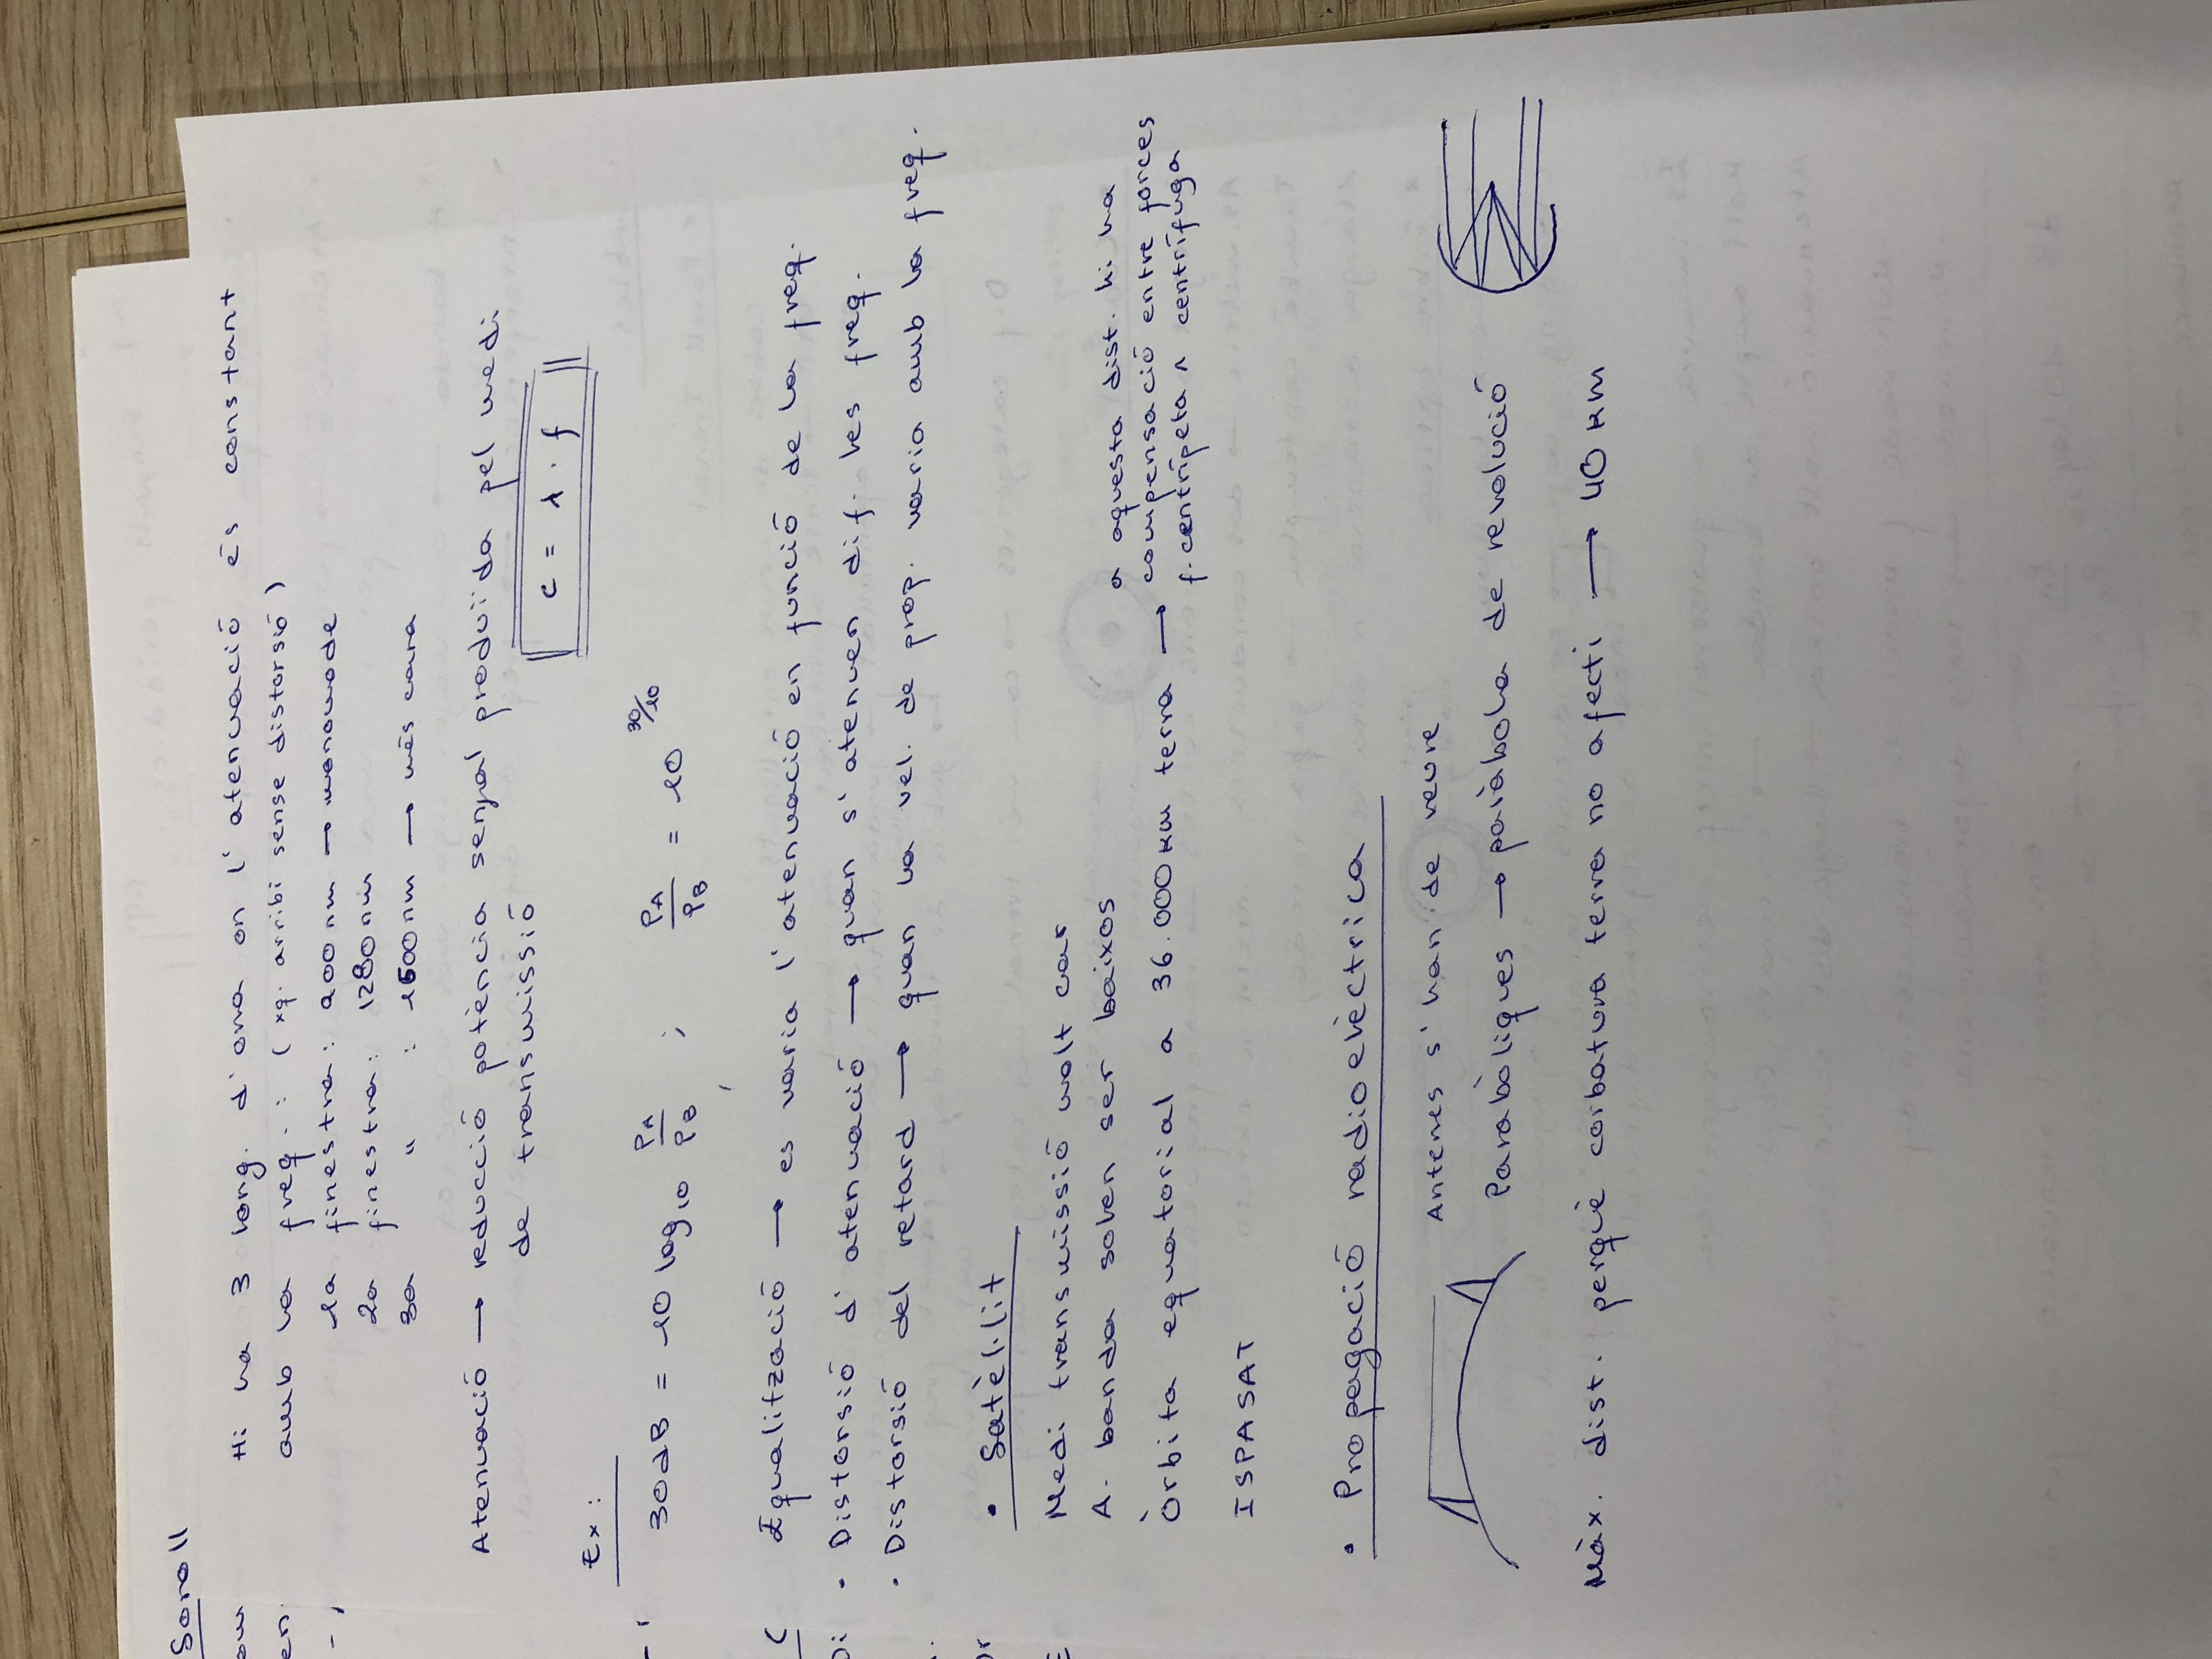 Soroll
Hi ha 3 long. d'ona on l'atenuació és constant
amb la freq. : (xq. arribi sense distorsió)
1a finestra: 900 nm → monomode
2a finestra: 1280 nm
3a " : 1600 nm → més cara
Atenuació → reducció potència senyal produïda pel medi
de transmissió
c = λ · f
Ex:
30dB = 10 log₁₀ PA/PB ; PA/PB = 10^30/10
Equalització → es varia l'atenuació en funció de la freq.
• Distorsió d'atenuació → quan s'atenuen dif. les freq.
• Distorsió del retard → quan la vel. de prop. varia amb la freq.
• Satèl·lit
Medi transmissió molt car
A. banda solen ser baixos
Òrbita equatorial a 36.000 km terra → a aquesta dist. hi ha
compensació entre forces
f. centrípeta ∧ centrífuga
ISPASAT
• Propagació radioelèctrica
Antenes s'han de veure
Parabòliques → paràbola de revolució
Màx. dist. perquè corbatura terra no afecti → 40 km